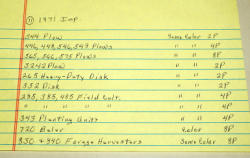 ⑪ 1971 Imp.
544 Plow Some Color 2P
446, 448, 546, 549 Plows " " 4P
565, 566, 575 Plows " " 8P
3242 Plow " " 2P
265 Heavy-Duty Disk " " 2P
332 Disk " " 2P
285, 385, 485 Field Cult. " " 4P
" " " " " 4P
343 Planting Units " " 4P
720 Baler Color 8P
830 & 840 Forage Harvesters Some Color 8P